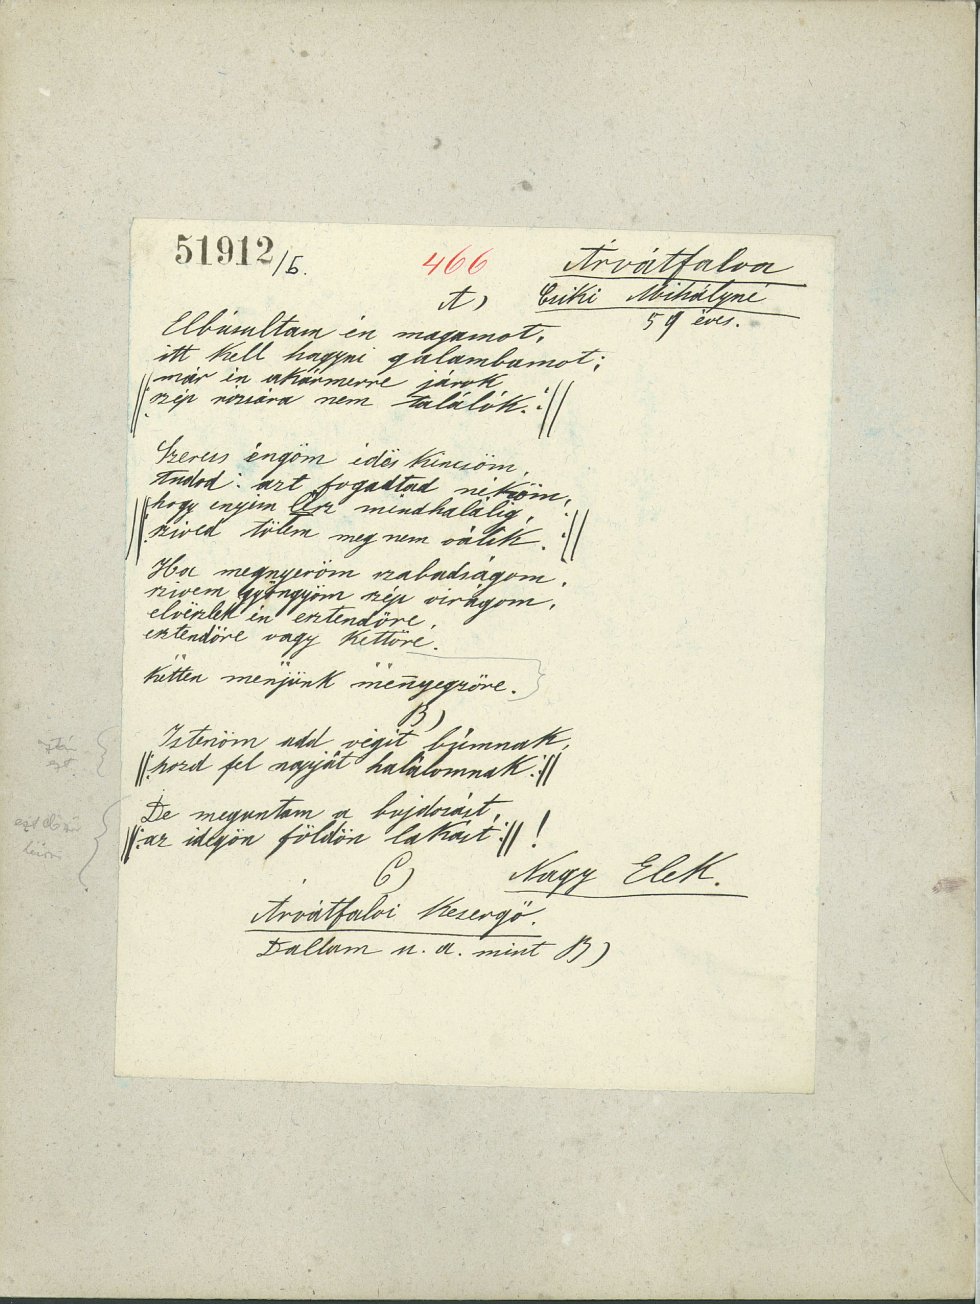 51912/b.
466
Árvátfalva
A)
Csiki Mihályné
59 éves.
Elbúsultam én magamot,
itt kell hagyni galambamot;
||: már én akármerre járok
szép rózsára nem találók. :||
Szeress éngöm édës kincsöm,
tudod: azt fogadtad néköm,
||: hogy enyim lész mindhalálig,
szived tőlem meg nem válik. :||
Ha megnyeröm szabadságom,
szivem gyöngyöm szép virágom,
elvëszlek én esztendőre,
esztendőre vagy kettőre.
Këtten mënjünk mënnyegzőre.
B)
Istenöm add végit búmnak,
||: hozd fel napját halálomnak :||
De meguntam a bujdosást,
||: az idegön földön lakást :|| !
C)
Nagy Elek.
Árvátfalvi kesergő.
Dallam u. a. mint B)